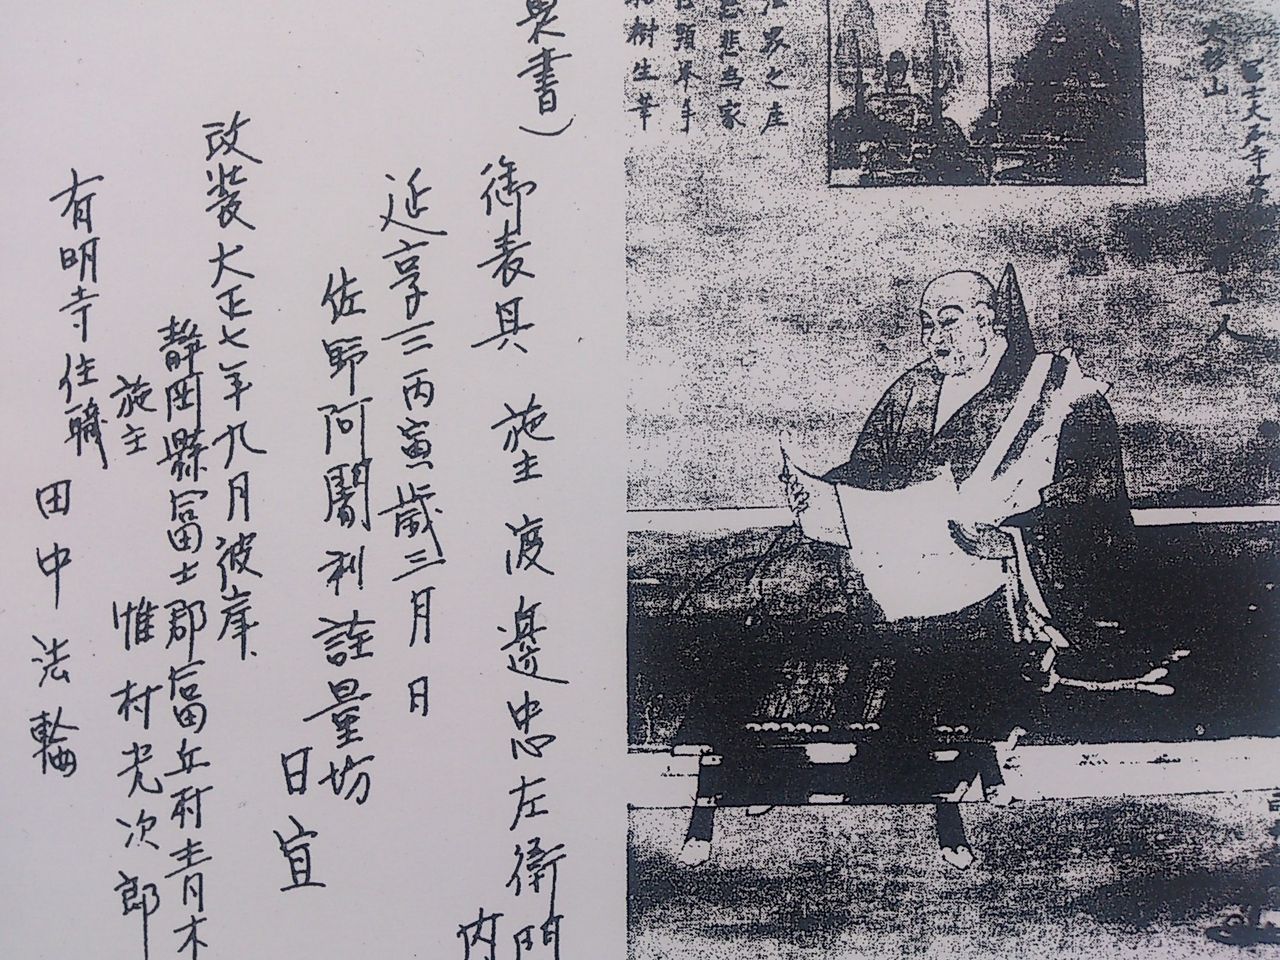 裏書）
御表具 施主 渡邉忠左衛門
内
延享三丙寅歳三月日
佐野阿闍利詮量坊
日宣
改装大正七年九月彼岸
静岡縣富士郡富丘村青木
施主 惟村光次郎
有明寺住職 田中法輪
上人
界之座
悲為家
顕本手
樹生筆